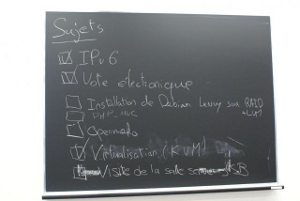 Sujets
IPv6
Vote électronique
Installation de Debian Lenny sur RAID
+LVM
PHP-MVC
Openmoko
Virtualisation (KVM)
Visite de la salle